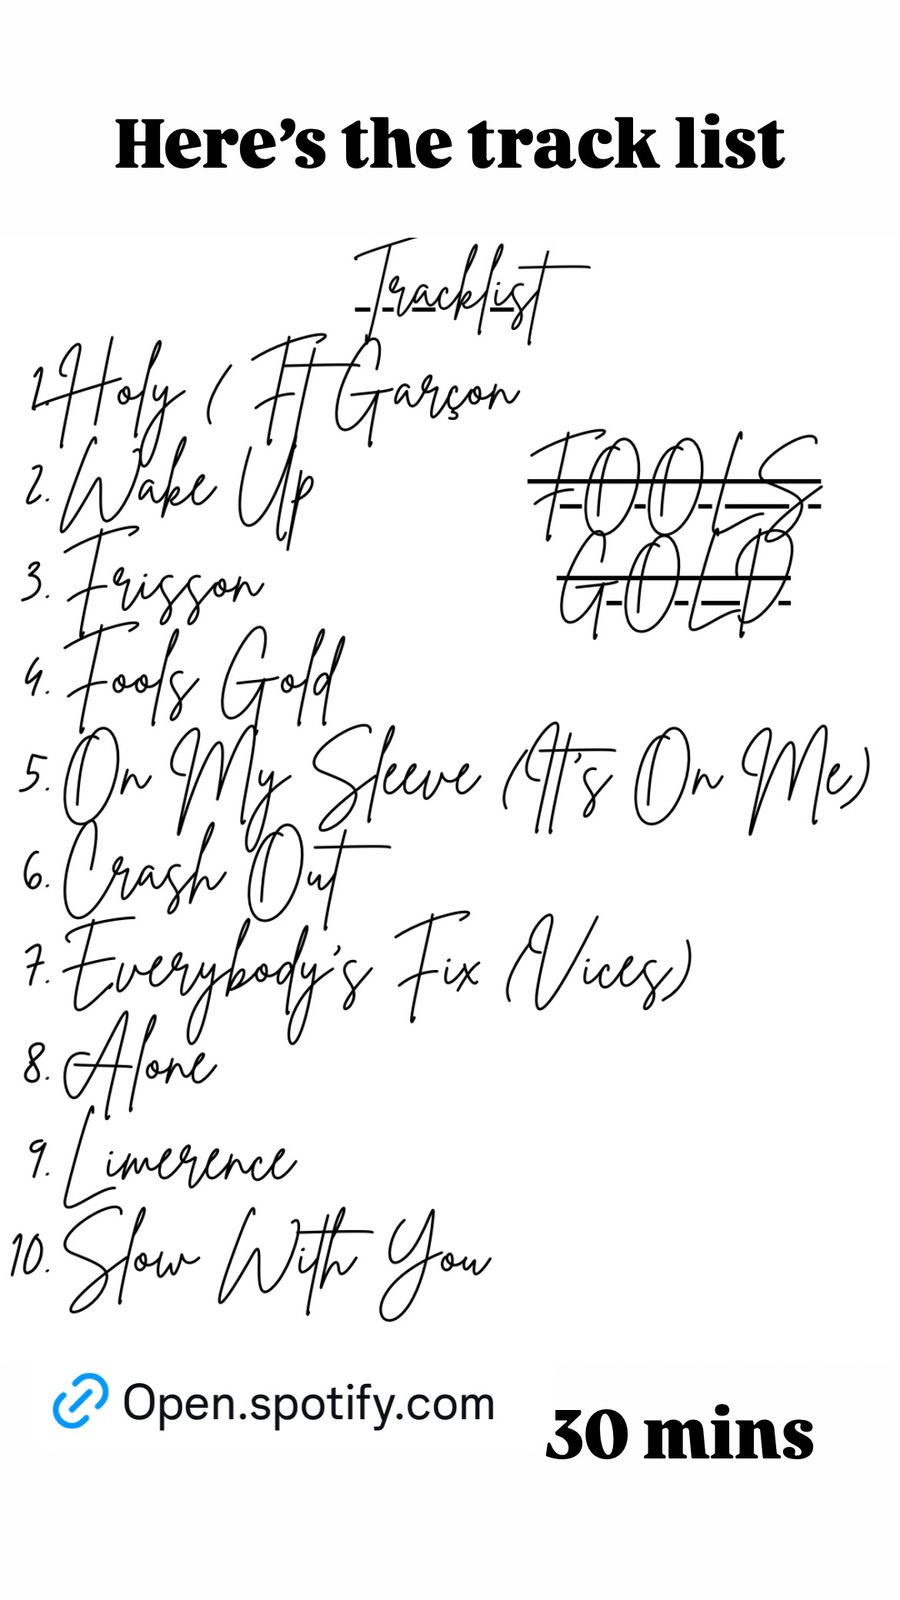 Here's the track list
Tracklist
1. Holy ( Ft Garçon
2. Wake Up
FOOLS
GOLD
3. Frisson
4. Fools Gold
5. On My Sleeve (It's On Me)
6. Crash Out
7. Everybody's Fix (Vices)
8. Alone
9. Limerence
10. Slow With You
Open.spotify.com
30 mins